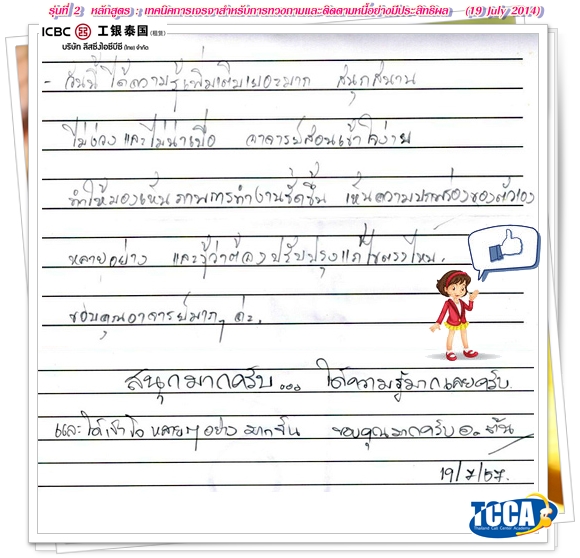 รุ่นที่ 2 หลักสูตร : เทคนิคการเจรจาสำหรับการทวงถามและติดตามหนี้อย่างมีประสิทธิผล (19 July 2014)
ICBC 工银泰国 (租赁)
บริษัท ลีสซิ่งไอซีบีซี (ไทย) จำกัด
- วันนี้ได้ความรู้เพิ่มเติมเยอะมาก สนุกสนาน
ไม่ง่วงและไม่น่าเบื่อ อาจารย์สอนเข้าใจง่าย
ทำให้มองเห็นภาพการทำงานชัดขึ้น เห็นความบกพร่องของตัวเอง
หลายอย่าง และรู้ว่าต้องปรับปรุงแก้ไขตรงไหน.
ขอบคุณอาจารย์มากๆ ค่ะ.
สนุกมากครับ... ได้ความรู้มากเลยครับ.
และได้เข้าใจหลายๆอย่าง มากขึ้น ขอบคุณมากครับ อ.
19/7/57.
TCCA
Thailand Call Center Academy